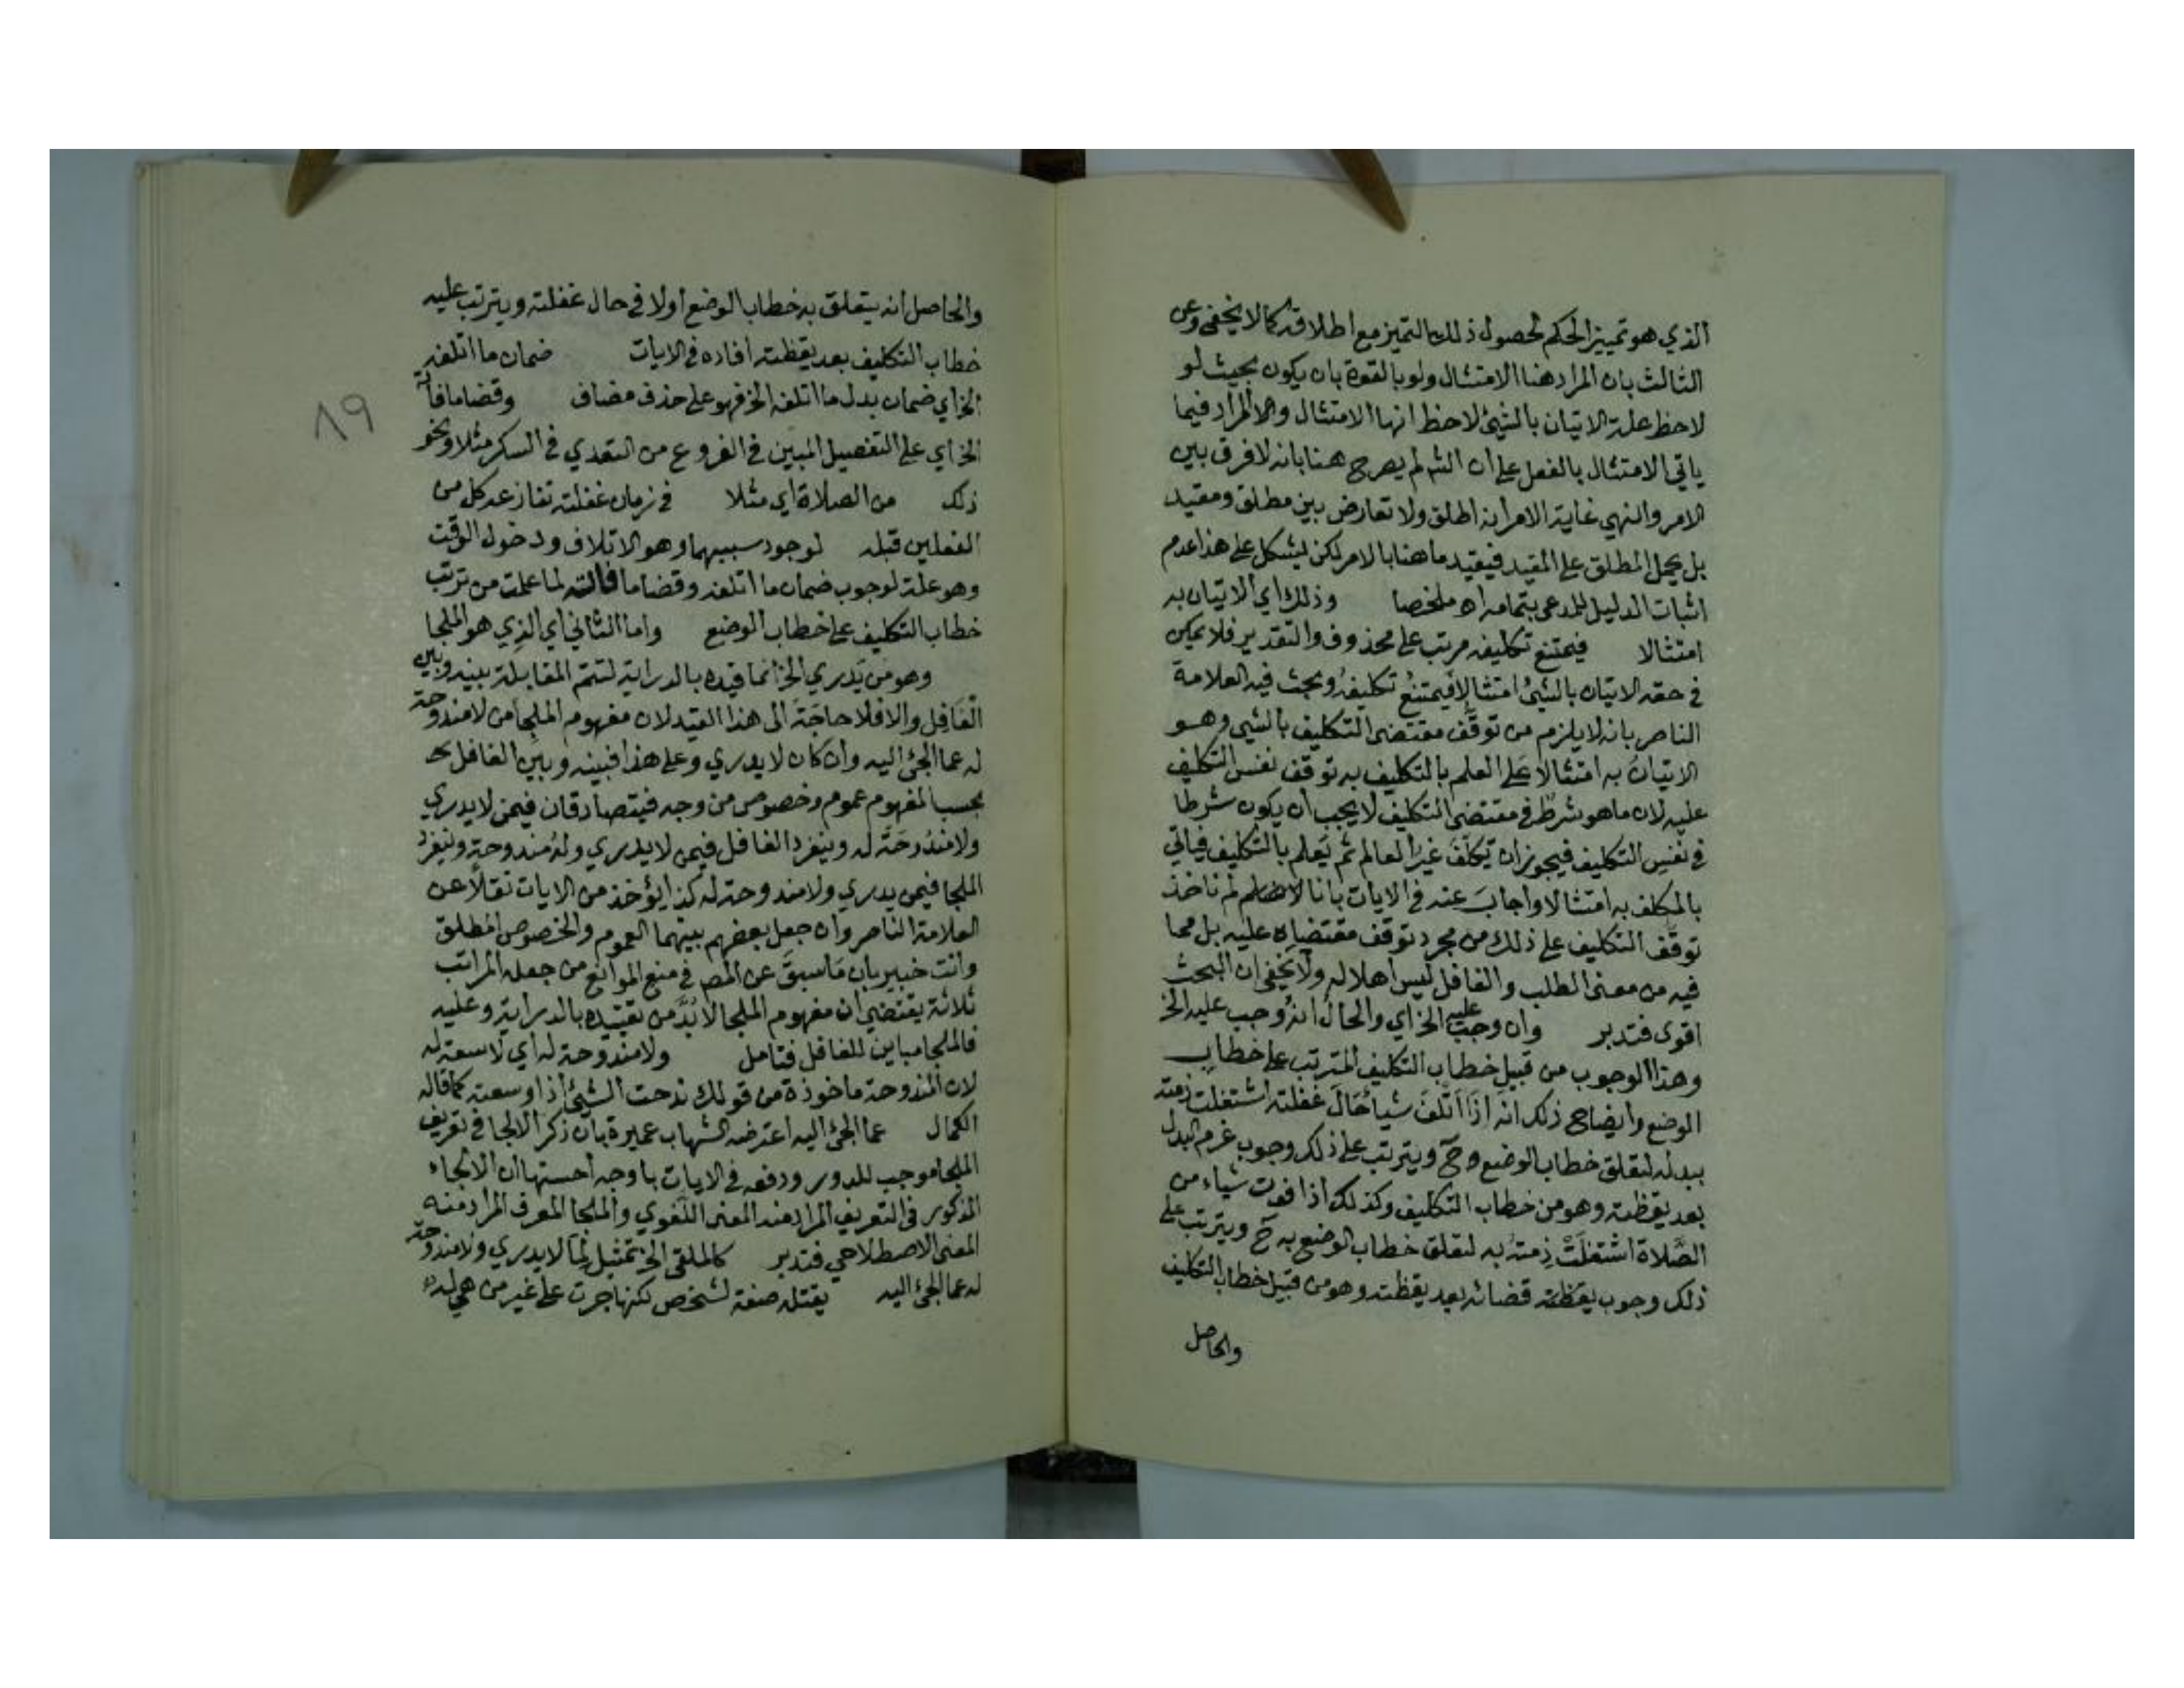 الذي هو تمييز الحكم لحصول ذلك التميز مع اطلاقه كما لا يخفى وعن
الثالث بان المراد هنا الامتثال ولو بالقوة بان يكون بحيث لو
لاحظ علة الاتيان بالشيئ لاحظ انها الامتثال والمراد فيما
ياتي الامتثال بالفعل على ان الش لم يصرح هنا بانه لا فرق بين
الامر والنهي غاية الامر انه اطلق ولا تعارض بين مطلق ومقيد
بل يحمل المطلق على المقيد فيقيد ما هنا بالامر لكن يشكل على هذا عدم
اثبات الدليل للمدعى بتمامه اه ملخصا وذلك اي الاتيان به
امتثالا فيمتنع تكليفه مرتب على محذوف والتقدير فلا يمكن
في حقه الاتيان بالشيئ امتثالا فيمتنع تكليفه وبحث فيه العلامة
الناصر بانه لا يلزم من توقف مقتضى التكليف بالشيي وهو
الاتيان به امتثالا على العلم بالتكليف به توقف نفس التكليف
عليه لان ما هو شرط في مقتضى التكليف لا يجب ان يكون شرطا
في نفس التكليف فيجوز ان يكلف غير العالم ثم يعلم بالتكليف فياتي
بالمكلف به امتثالا واجاب عنه في الايات بانا لم ناخذ
توقف التكليف على ذلك من مجرد توقف مقتضاه عليه بل مما
فيه من معنى الطلب والغافل ليس اهلا له ولا يخفى ان البحث
اقوى فتدبر وان وجب عليه الخ اي والحال انه وجب عليه الخ
وهذا الوجوب من قبيل خطاب التكليف المترتب على خطاب
الوضع وايضاح ذلك انه اذا اتلف شيا حال غفلته اشتغلت ذمته
ببدله لتعلق خطاب الوضع به ح ويترتب على ذلك وجوب غرم البدل
بعد يقظته وهو من خطاب التكليف وكذلك اذا فوت شياء من
الصلاة اشتغلت ذمته به لتعلق خطاب الوضع به ح ويترتب على
ذلك وجوب يقظته قضائه بعد يقظته وهو من قبيل خطاب التكليف
والحاصل
والحاصل انه يتعلق به خطاب الوضع اولا في حال غفلته ويترتب عليه
خطاب التكليف بعد يقظته افاده في الايات ضمان ما اتلفه
الخ اي ضمان بدل ما اتلفه الخ فهو على حذف مضاف وقضا ما فاته
الخ اي على التفصيل المبين في الفروع من التعدي في السكر مثلا ونحو
ذلك من الصلاة اي مثلا في زمان غفلته تنازعه كل من
الفعلين قبله لوجود سببيهما وهو الاتلاف ودخول الوقت
وهو علة لوجوب ضمان ما اتلفه وقضا ما فاته لما علمت من ترتب
خطاب التكليف على خطاب الوضع واما الثاني اي الذي هو الملجا
وهو من يدري الخ انما قيده بالدراية لتتم المقابلة بينه وبين
الغافل والا فلا حاجة الى هذا القيد لان مفهوم الملجا من لا مندوحة
له عما الجئ اليه وان كان لا يدري وعلى هذا فبينه وبين الغافل ح
بحسب المفهوم عموم وخصوص من وجه فيتصادقان فيمن لا يدري
ولا مندوحة له وينفرد الغافل فيمن لا يدري وله مندوحة وينفرد
الملجا فيمن يدري ولا مندوحة له كذا يؤخذ من الايات نقلا عن
العلامة الناصر وان جعل بعضهم بينهما العموم والخصوص المطلق
وانت خبير بان ما سبق عن المص في منع الموانع من جعله المراتب
ثلاثة يقتضي ان مفهوم الملجا لا بد من تقييده بالدراية وعليه
فالملجا مباين للغافل فتامل ولا مندوحة له اي لا سعة له
لان المندوحة ماخوذة من قولك ندحت الشيئ اذا وسعته كما قاله
الكمال عما الجئ اليه اعترضه الشهاب عميرة بان ذكر الالجا في تعريف
الملجا موجب للدور ودفعه في الايات باوجه احسنها ان الالجاء
المذكور في التعريف المراد منه المعنى اللغوي والملجا المعرف المراد منه
المعنى الاصطلاحي فتدبر كالملقى الخ تمثيل لما لا يدري ولا مندوحة
له عما الجئ اليه يقتله صفة لشخص لكنها جرت على غير من هي له
٨٩